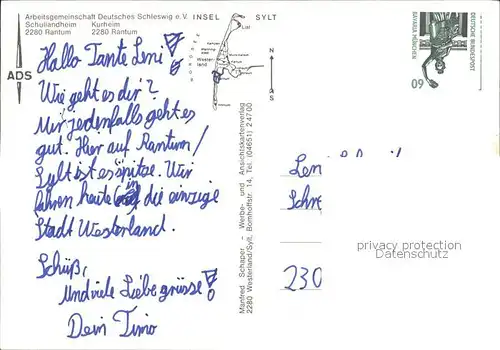 Arbeitsgemeinschaft Deutsches Schleswig e.V.
Schullandheim Kurheim
2280 Rantum 2280 Rantum
ADS
INSEL SYLT
NORDSEE
List
Westerland
Rantum
N
S
Hallo Tante Leni!
Wie geht es dir?
Mir jedenfalls geht es
gut. Hier auf Rantum/
Sylt ist es spitze. Wir
fahren heute in die einzige
Stadt Westerland.
Schüß,
Und viele Liebe grüsse!
Dein Timo
Manfred Schaper – Werbe- und Ansichtskartenverlag
2280 Westerland/Sylt, Bomhoffstr. 14, Tel. (04651) 24700
60
DEUTSCHE BUNDESPOST
BAVARIA MÜNCHEN
Len
Schre
230
privacy protection
Datenschutz